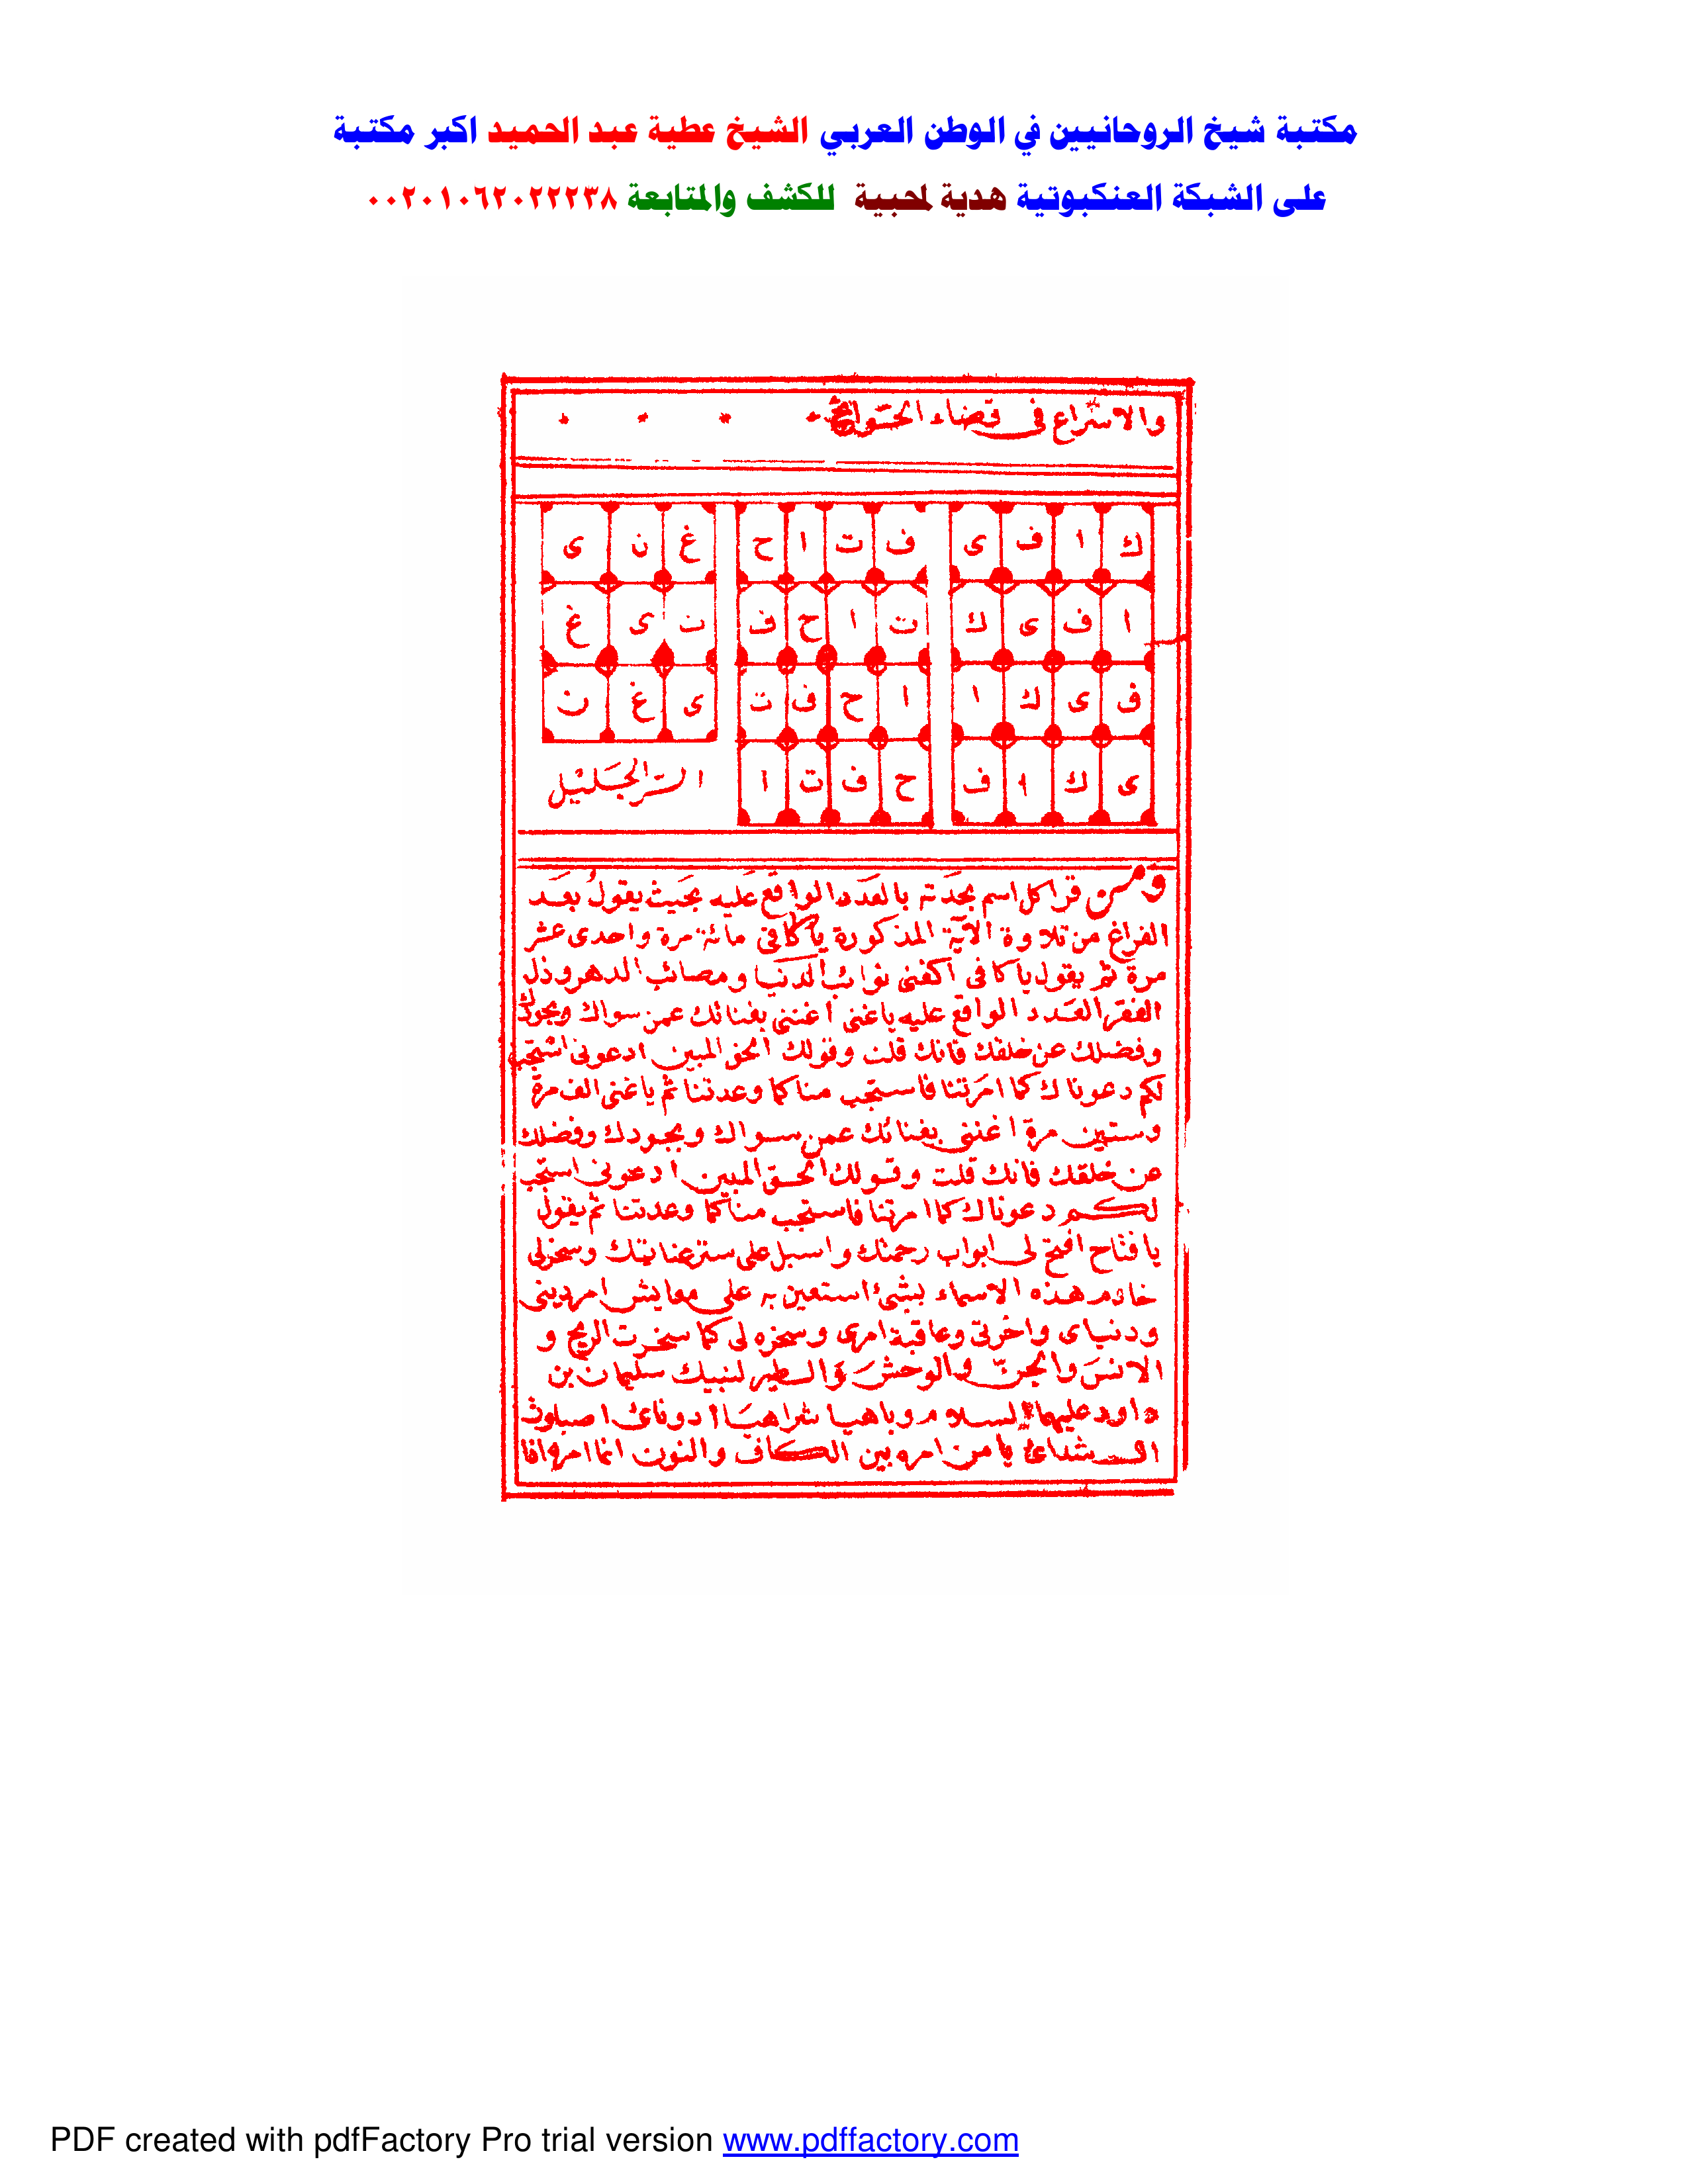 مكتبة شيخ الروحانيين في الوطن العربي الشيخ عطية عبد الحميد اكبر مكتبة
على الشبكة العنكبوتية هدية لمحبية للكشف والمتابعة ٠٠٢٠١٠٦٢٠٢٢٢٣٨
والاسراع فى قضاء الحوائج
ك ا ف ى ف ت ا ح غ ن ى
ا ف ى ك ت ا ح ف ن ى غ
ف ى ك ا ا ح ف ت ى غ ن
ى ك ا ف ح ف ت ا السر الجليل
ومن قرا كل اسم بحدته بالعدد الواقع عليه بحيث يقول بعد
الفراغ من تلاوة الآية المذكورة ياكافى مائة مرة واحدى عشر
مرة ثم يقول ياكافى اكفنى نوائب الدنيا ومصائب الدهر وذل
الفقر العدد الواقع عليه ياغنى اغننى بغنائك عمن سواك وبجودك
وفضلك عن خلقك فانك قلت وقولك الحق المبين ادعونى استجب
لكم دعوناك كما امرتنا فاستجب منا كما وعدتنا ثم ياغنى الف مرة
وستين مرة اغننى بغنائك عمن سواك وبجودك وفضلك
عن خلقك فانك قلت وقولك الحق المبين ادعونى استجب
لكم دعوناك كما امرتنا فاستجب منا كما وعدتنا ثم يقول
يافتاح افتح لى ابواب رحمتك واسبل على ستر عنايتك وسخر لى
خادم هذه الاسماء بشئ استعين به على معايش امر دينى
ودنياى واخرتى وعاقبة امرى وسخره لى كما سخرت الريح و
الانس والجن والوحش والطير لنبيك سليمان بن
داود عليهما السلام وباهيا شراهيا ادوناى اصباوث
ال شداى يا من امره بين الكاف والنون انما امره اذا
PDF created with pdfFactory Pro trial version www.pdffactory.com